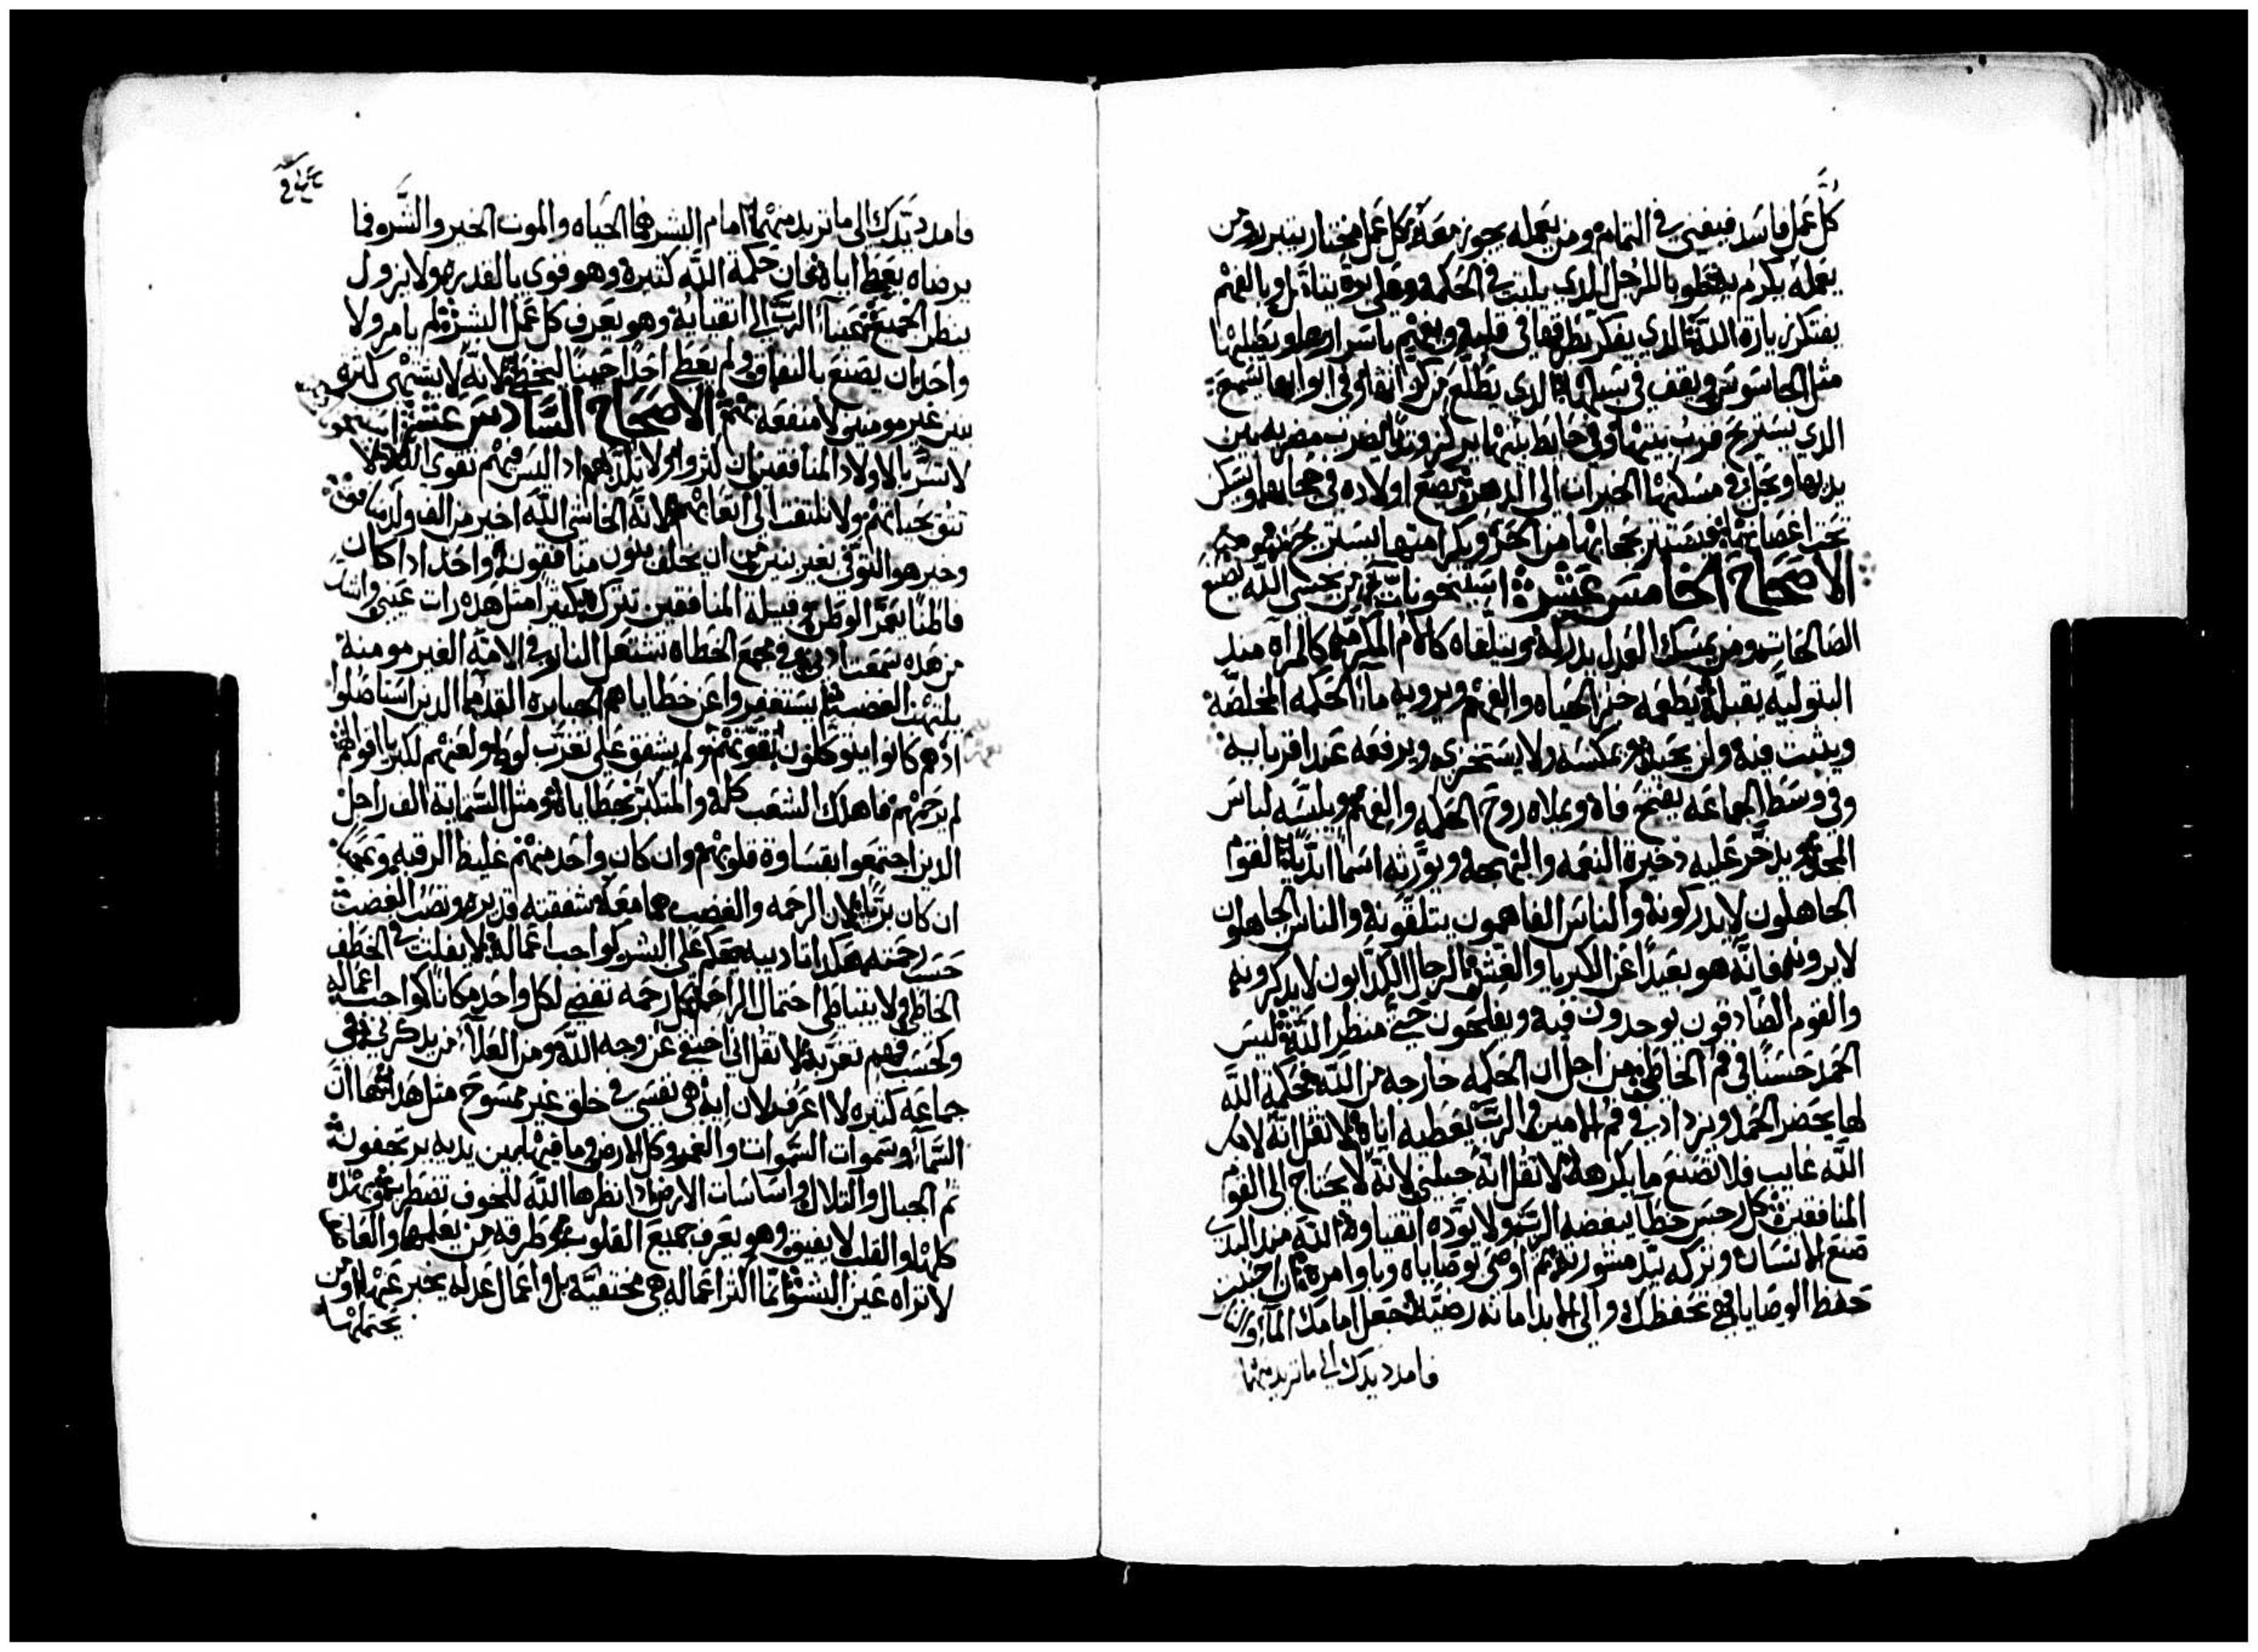 كل عمل فاسد فيفنى في التمام ومن يعمله يجوز معه كل عمل مختار يتبرر ومن
يعمله يكرم به طوبا للرجل الدي يلبت في الحكمة وفي بره يتامل وبالفهم
يفتكر بازه الله الدي يفكر بطرقها في قلبه ويفهم باسرارها ويطلبها
مثل الجاسوس ويقف في سبلها الدي يطلع من كواتها وفي ابوابها يسمع
الدي يستريح قرب بيتها وفي حايط بيتها يركز وتدا يضرب مضربه بين
يديها ويحل في مسكنها الخيرات الى الدهر يضع اولاده في حجابها ويسكن
تحت اغصانها فيستتر بحجابها من الحر وبكرامتها يستريح
الاصحاح الخامس عشر من يخشى الله يصنع
الصالحات ومن يمسك العدل يدركه وتتلقاه كالام المكرمه كالمراه مند
البتوليه يقبله يطعمه خبز الحياه والفهم ويرويه ماء الحكمه المخلصه
ويتبت فيه ولن يحيد ويمكسه ولا يستخزي ويرفعه عند اقربايه
وفي وسط الجماعه يفتح فاه ويملاه روح الحكمه والفهم ويلبسه لباس
المجد ويدخر عليه دخيرة النعمه والبهجه ويورته اسما ابديا القوم
الجاهلون لا يدركونه والناس الفاهمون يتلقونه والناس الجاهلون
لا يرونه فانه هو بعيدا عن الكبريا والغش الرجال الكدابون لا يدكرونه
والقوم الصادقون يوجدون فيه ويفلحون حتى منظر الله ليس
الحمد حسنا في فم الخاطي من اجل ان الحكمه خارجه من الله فحكمة الله
لها يحضر الحمد ويزداد في فم الامين الرب يعطيه اياه لا تقل انه لاجل
الله غايب فلا تصنع ما يكرهه لا تقل انه خبلني لانه لا يحتاج الى القوم
المنافقين كل رجس خطا يبغضه الرب ولا يوده اتقياوه الله مند البدي
صنع الانسان وتركه بيد مشورته تم اوصى بوصاياه وباوامره ان احببت
حفظ الوصايا هي تحفظك والى الابد امانه رضيه جعل امامك الماء والنار
فامدد يدك الى ما تريد منها
فامدد يدك الى ما تريد منهما امام البشر هما الحياه والموت الخير والشر وما
يرضاه يعطا اياه فان حكمة الله كتيره وهو قوي بالقدره ولا يزول
ينظر الجميع عينا الرب الى اتقيايه وهو يعرف كل عمل البشر لم يامر ولا
واحد بان يصنع بالنفاق ولم يعط احدا حينا ليخطى لانه لا يشتهي كترة
بنين غير مومنين لا منفعه الاصحاح السادس عشر
لا تسر بالاولاد المنافقين ان كتروا ولا تلتد بهم اد ليس فيهم تقوى الله لا
تتق بحياتهم ولا تلتفت الى اتعابهم لانه الخاشي الله اخير من الف ولد منافق
وخير هو التوفي بغير بنين من ان يخلف بنون منافقون واحد ادا كان
فاطنا يعمر الوطن وقبيلة المنافقين تترك كتيرا متل هده رات عيني واشد
من هده سمعت ادني في مجمع الخطاه تشتعل النار وفي الامه الغير مومنه
يلتهب الغضب لم يستغفروا عن خطاياهم الجبابره القدما الدين استاصلوا
اد هم كانوا يتوكلون بقوتهم ولم يشفق على تغرب لوط ولعنهم لكبريا اقوالهم
لم يرحمهم فاهلك الشعب كله والمتكبر بخطاياه ومتل الستماية الف راجل
الدين اجتمعوا بقساوة قلوبهم وان كان واحد منهم غليظ الرقبه وعجبا
ان كان بريا لان الرحمه والغضب هما معه شفقته قديره وتصب الغضب
حسب رحمته هكدا تاديبه يحكم على البشر كواجب اعماله لا يفلت في الخطف
الخاطي ولا يتباطى احتمال الراحم كل رحمه تقضي لكل واحد مكانا كواجب اعماله
وكحسب فهم تغربه لا تقل اني اختفي عن وجه الله ومن العلا من يدكرني ففي
جماعه كتيره لا اعرف لان ايه هي نفسي في خلق غير ممسوح متل هدا ها ان
السما وسموات السموات والغمر وكل الارض وما فيها بين يديه يرتجفون
تم الجبال والتلال واساسات الارض ادا نظرها الله للخوف تضطرب
كلها والقلب لا يفيق وهو يعرف جميع القلوب وطرقه من يعلمها والعاصف
لا تراه عين البشر انما اكتر اعماله هي مختفيه بل واعمال عدله يخبر عنها ومن
يحتملها